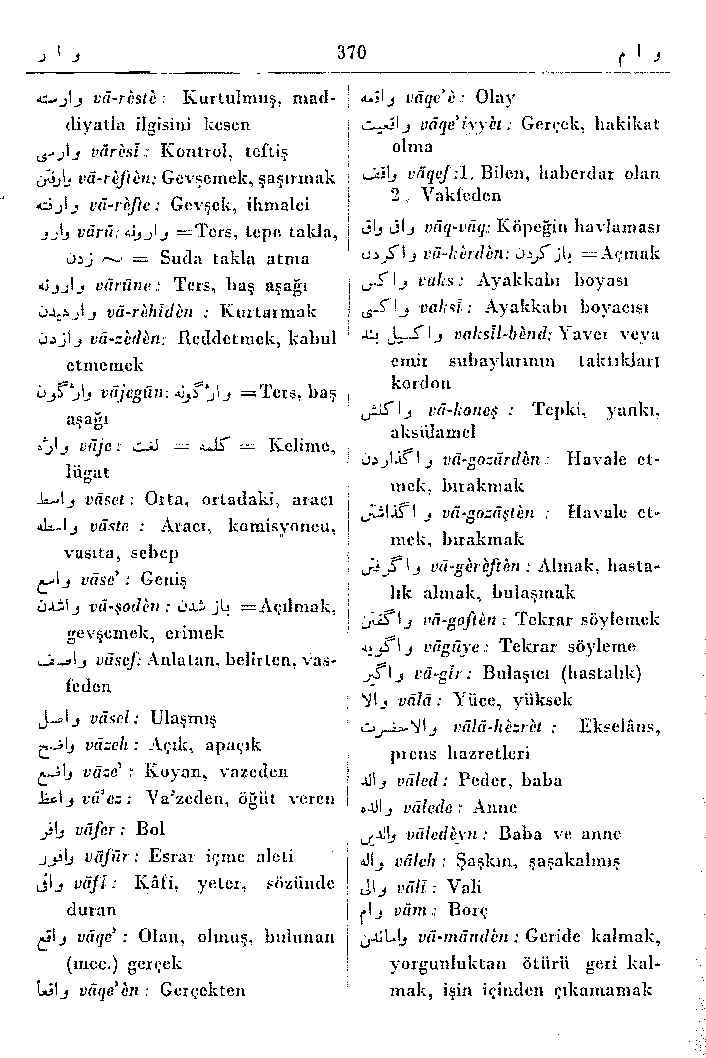 وار
370
وام
وارسته vā-rèstè : Kurtulmuş, mad-
diyatla ilgisini kesen
وارسی vārèsī : Kontrol, teftiş
وارفتن vā-rèftèn: Gevşemek, şaşırmak
وارفته vā-rèfte : Gevşek, ihmalci
وارو vārū: وارونه =Ters, tepe takla,
زدن ~ = Suda takla atma
وارونه vārūne : Ters, baş aşağı
وارهیدن vā-rèhīdèn : Kurtarmak
وازدن vā-zèdèn: Reddetmek, kabul
etmemek
واژگون vājegūn: واژگونه =Ters, baş
aşağı
واژه vāje : لغت = کلمه = Kelime,
lügat
واسط vāset : Orta, ortadaki, aracı
واسطه vāsta : Aracı, komisyoncu,
vasıta, sebep
واسع vāse' : Geniş
واشدن vā-şodèn : باز شدن =Açılmak,
gevşemek, erimek
واصف vāsef: Anlatan, belirten, vas-
feden
واصل vāsel : Ulaşmış
واضح vāzeh : Açık, apaçık
واضع vāze' : Koyan, vazeden
واعظ vā'ez : Va'zeden, öğüt veren
وافر vāfer : Bol
وافور vāfūr : Esrar içme aleti
وافی vāfī : Kâfi, yeter, sözünde
duran
واقع vāqe' : Olan, olmuş, bulunan
(mec.) gerçek
واقعا vāqe'èn : Gerçekten
واقعه vāqe'è : Olay
واقعیت vāqe'iyyèt : Gerçek, hakikat
olma
واقف vāqef :1. Bilen, haberdar olan
2. Vakfeden
واق واق vāq-vāq: Köpeğin havlaması
واکردن vā-kèrdèn: باز کردن =Açmak
واکس vaks : Ayakkabı boyası
واکسی vaksī : Ayakkabı boyacısı
واکسیل بند vaksīl-bènd: Yaver veya
emir subaylarının taktıkları
kordon
واکنش vā-koneş : Tepki, yankı,
aksülamel
واگذاردن vā-gozārdèn : Havale et-
mek, bırakmak
واگذاشتن vā-gozāştèn : Havale et-
mek, bırakmak
واگرفتن vā-gèrèftèn : Almak, hasta-
lık almak, bulaşmak
واگفتن vā-goftèn : Tekrar söylemek
واگویه vāgūye : Tekrar söyleme
واگیر vā-gīr : Bulaşıcı (hastalık)
والا vālā : Yüce, yüksek
والاحضرت vālā-hèzrèt : Ekselâns,
prens hazretleri
والد vāled : Peder, baba
والده vālede : Anne
والدین vāledèyn : Baba ve anne
واله vāleh : Şaşkın, şaşakalmış
والی vālī : Vali
وام vām : Borç
واماندن vā-māndèn : Geride kalmak,
yorgunluktan ötürü geri kal-
mak, işin içinden çıkamamak